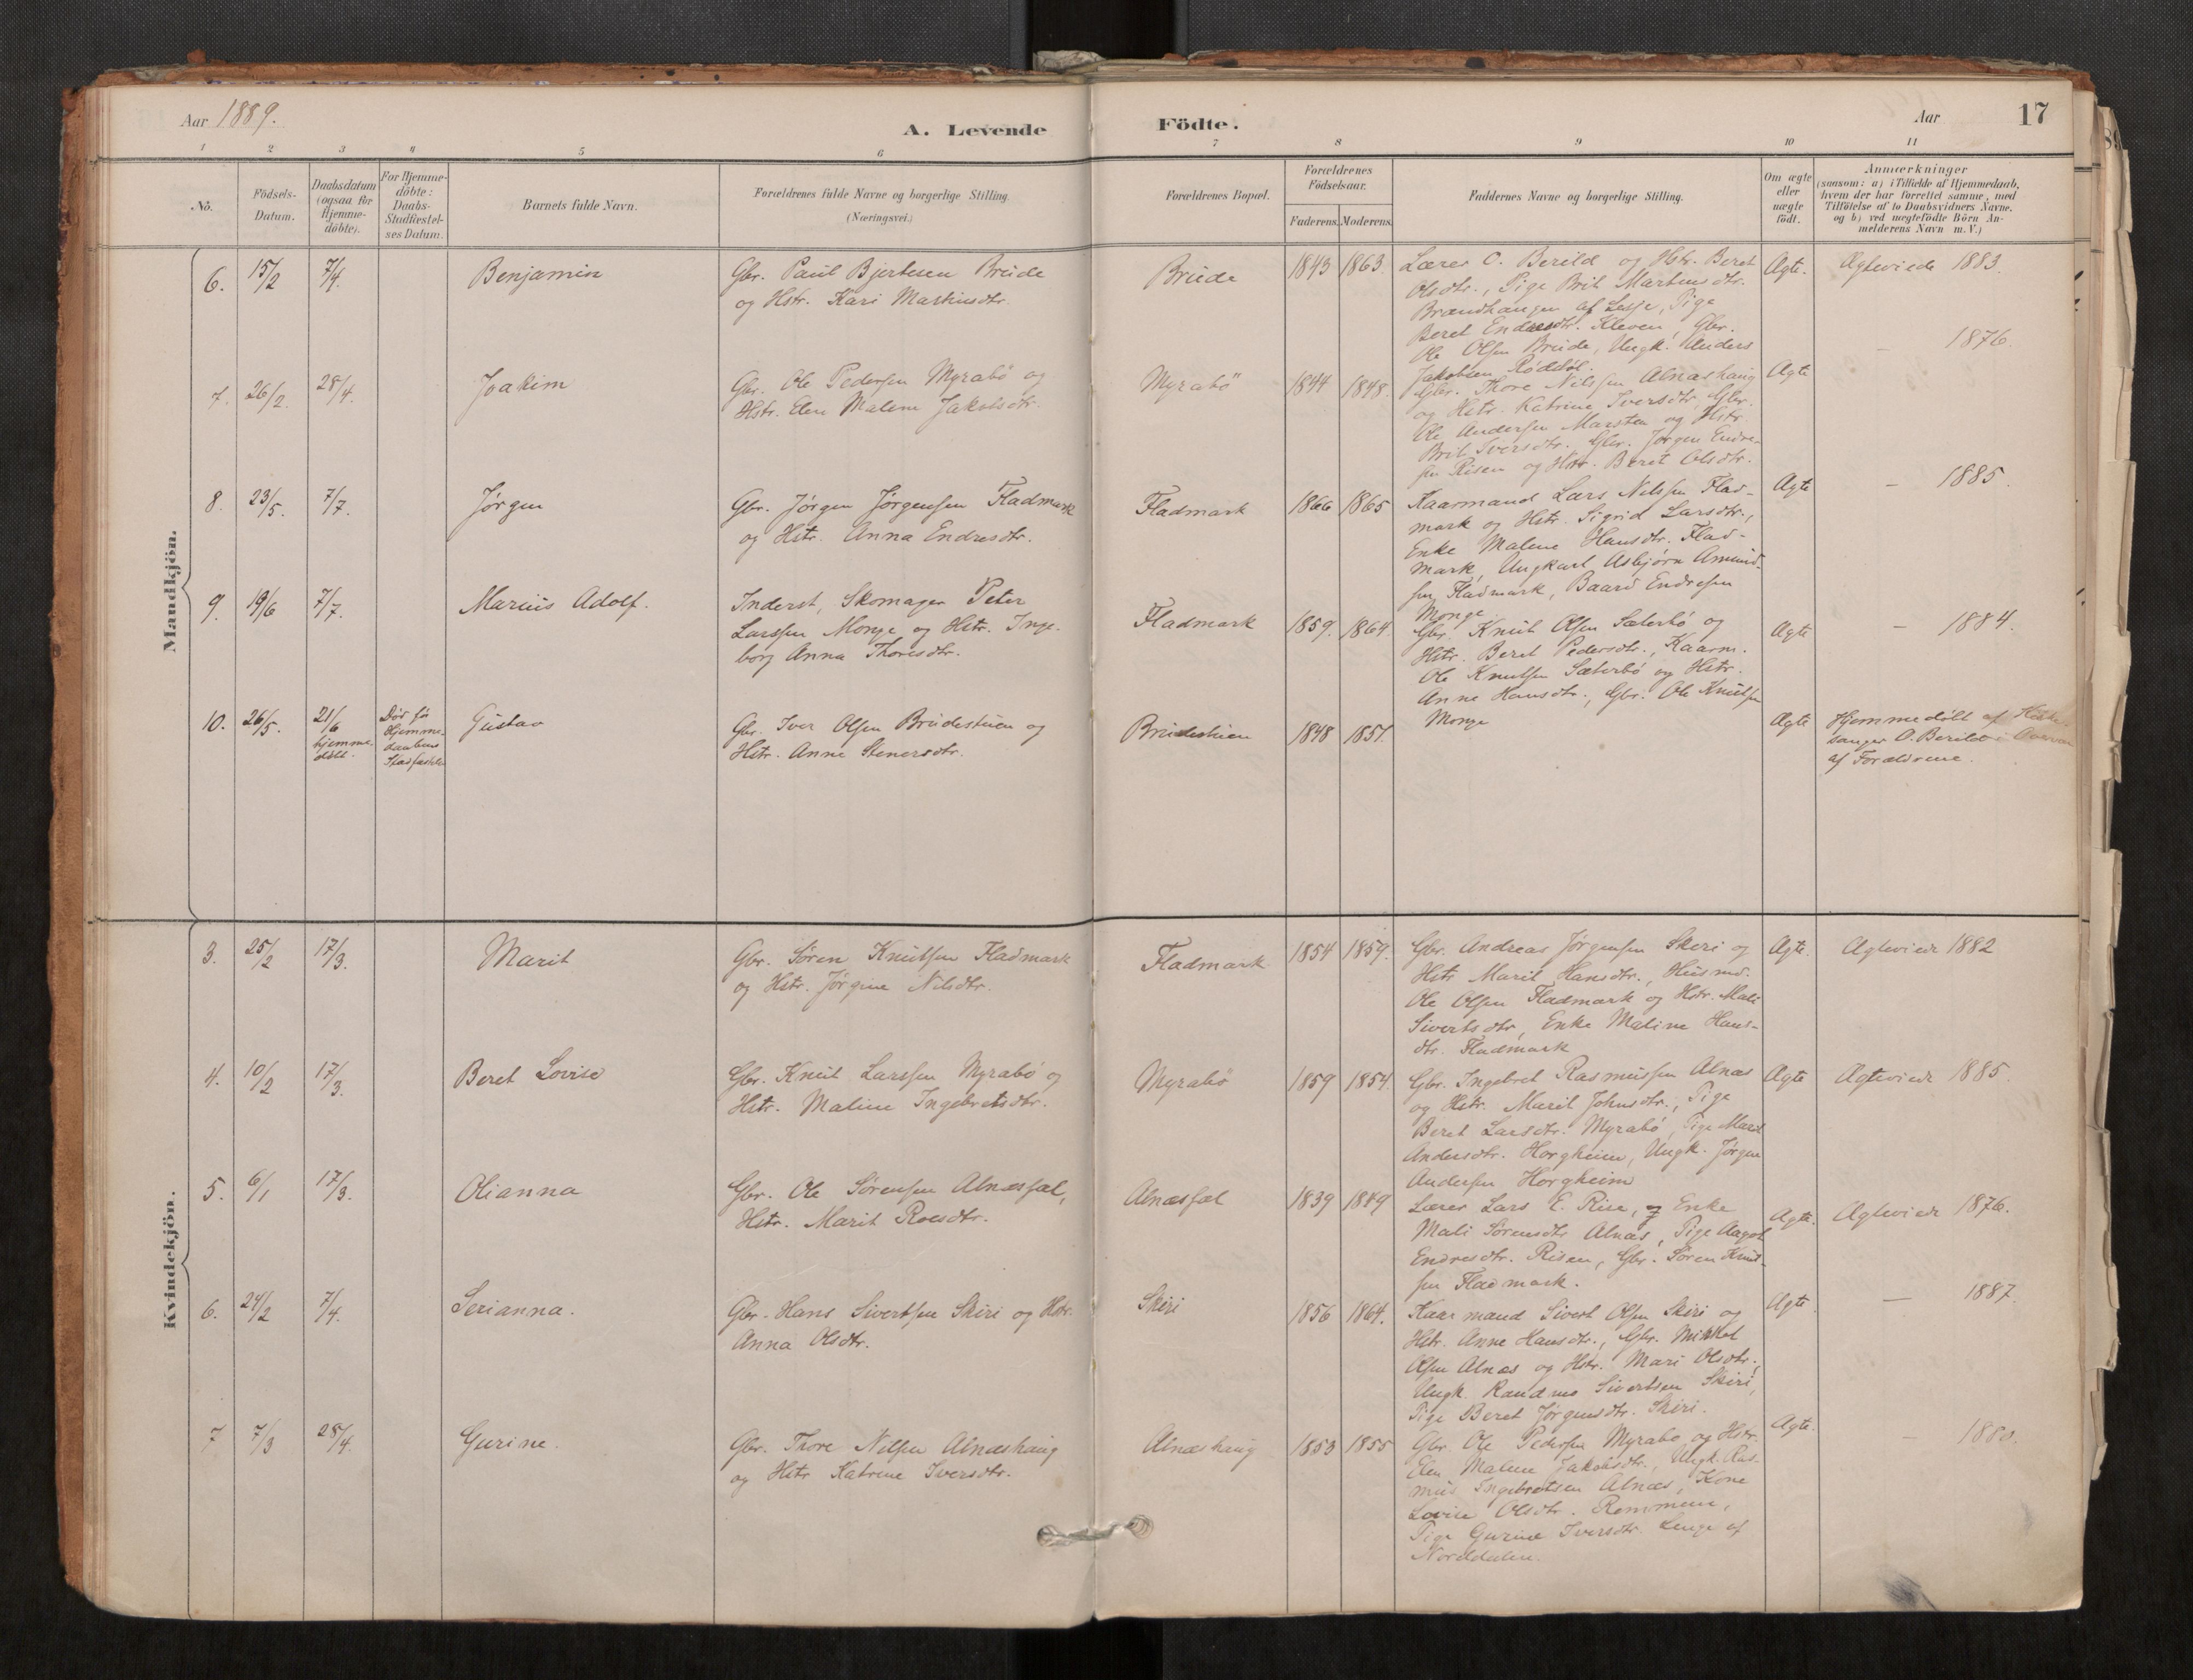 Aar 1889.
A. Levende
Födte.
Aar
17
1 2 3 4 5 6 7 8 9 10 11
No.
Födsels-
Datum.
Daabsdatum
(ogsaa for
Hjemme-
döbte).
For Hjemme-
döbte:
Daabs-
Stadfæstel-
ses Datum.
Barnets fulde Navn.
Forældrenes fulde Navne og borgerlige Stilling.
(Næringsvei.)
Forældrenes Bopæl.
Forældrenes
Födselsaar.
Faderens. Moderens.
Faddernes Navne og borgerlige Stilling.
Om ægte
eller
uægte
födt.
Anmærkninger
(saasom: a) i Tilfælde af Hjemmedaab,
hvem der har forrettet samme, med
Tilföielse af to Daabsvidners Navne,
og b) ved uægtefödte Börn An-
melderens Navn m.V.)
Mandkjön.
6. 15/2 7/4. Benjamin
Gbr. Paul Bjertesen Brude
og Hstr. Kari Martinsdtr.
Brude 1843 1863.
Lærer O. Berild og Hstr. Beret
Olsdtr., Pige Brit Martinsdtr.
Brandhaugen af Lesje, Pige
Beret Endresdtr. Kleven, Gbr.
Ole Olsen Brude, Ungk. Anders
Jakobsen Rødstøl.
Ægte. Ægteviede 1883.
7. 26/2. 28/4. Joakim
Gbr. Ole Pedersen Myrabö og
Hstr. Elen Malene Jakobsdtr.
Myrabö 1844 1848.
Gbr. Thore Nilssen Alnæshaug
og Hstr. Katrine Iversdtr. Gbr.
Ole Andersen Marsten og Hstr.
Brit Iversdtr. Gbr. Jørgen Endre-
sen Risen og Hstr. Beret Olsdtr.
Ægte — 1876.
8. 23/5. 7/7. Jørgen
Gbr. Jørgen Jørgensen Fladmark
og Hstr. Anna Endresdtr.
Fladmark 1866 1865
Kaarmand Lars Nilssen Flad-
mark og Hstr. Sigrid Larsdtr.,
Enke Malene Hansdtr. Flad-
mark, Ungkarl Asbjørn Amund-
sen Fladmark, Baard Endresen
Monge
Ægte — 1885.
9. 19/6 7/7. Marius Adolf.
Inderst, Skomager Peter
Larssen Monge og Hstr. Inge-
borg Anna Thoresdtr.
Fladmark 1859. 1864.
Gbr. Knut Olsen Sæterbö og
Hstr. Beret Pedersdtr., Kaarm.
Ole Knutsen Sæterbö og Hstr.
Anne Hansdtr., Gbr. Ole Knutsen
Monge
Ægte — 1884.
10. 26/5. 21/6 hjemme-
döbt.
Död før
Hjemme-
daabens
Stadfæstelse
Gustav
Gbr. Iver Olsen Brudestuen og
Hstr. Anne Stenersdtr.
Brudestuen 1848 1857.
Ægte
Hjemmedøbt af Kirke-
sanger O. Berild i Overvær
af Forældrene.
Kvindekjön.
3. 25/2 17/3. Marit
Gbr. Søren Knutsen Fladmark
og Hstr. Jørgine Nilsdtr.
Fladmark 1854 1859.
Gbr. Andreas Jørgensen Skiri og
Hstr Marit Hansdtr., Husmd.
Ole Olsen Fladmark og Hstr. Mali
Sivertsdtr, Enke Maline Hans-
dtr. Fladmark
Ægte. Ægteviede 1882
4. 10/2 17/3. Beret Lovise
Gbr. Knut Larssen Myrabö og
Hstr. Maline Ingebretsdtr.
Myrabö 1859 1854.
Gbr. Ingebret Rasmussen Alnæs
og Hstr. Marit Johnsdtr., Pige
Beret Larsdtr. Myrabö, Pige Marit
Andersdtr. Horgheim, Ungk. Jørgen
Andersen Horgheim
Ægte Ægteviede 1885.
5. 6/1 17/3. Olianna
Gbr. Ole Sørensen Alnæsfæt,
Hstr. Marit Roesdtr.
Alnæsfæt 1839 1849
Lærer Lars E. Rise, og Enke
Mali Sørensdtr Alnæs, Pige Aagot
Endresdtr. Risen, Gbr. Søren Knut-
sen Fladmark.
Ægte. Ægteviede 1876.
6. 24/2 7/4. Serianna.
Gbr. Hans Sivertsen Skiri og Hstr.
Anna Olsdtr.
Skiri 1856 1864.
Kaarmand Sivert Olsen Skiri og
Hstr. Anne Hansdtr., Gbr. Mikkel
Olsen Alnæs og Hstr. Mari Olsdtr.,
Ungk. Rasmus Sivertsen Skiri,
Pige Beret Jørgensdtr. Skiri.
Ægte. — 1887.
7 7/3 28/4. Gurine.
Gbr. Thore Nilsen Alnæshaug
og Hstr Katrine Iversdtr.
Alnæshaug 1853 1855
Gbr. Ole Pedersen Myrabö og Hstr.
Elen Malene Jakobsdtr., Ungk. Ras-
mus Ingebretsen Alnæs, Kone
Lovise Olsdtr. Remmem,
Pige Gurine Iversdtr. Lenge af
Norddalen.
Ægte. — 1880.